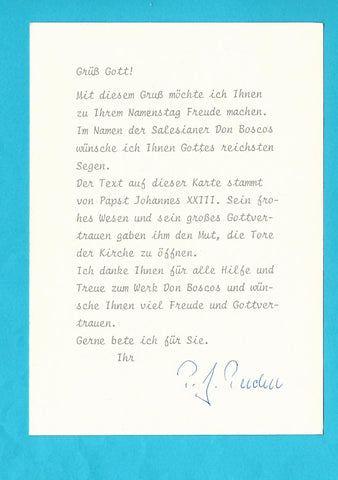 Grüß Gott!
Mit diesem Gruß möchte ich Ihnen
zu Ihrem Namenstag Freude machen.
Im Namen der Salesianer Don Boscos
wünsche ich Ihnen Gottes reichsten
Segen.
Der Text auf dieser Karte stammt
von Papst Johannes XXIII. Sein fro-
hes Wesen und sein großes Gottver-
trauen gaben ihm den Mut, die Tore
der Kirche zu öffnen.
Ich danke Ihnen für alle Hilfe und
Treue zum Werk Don Boscos und wün-
sche Ihnen viel Freude und Gottver-
trauen.
Gerne bete ich für Sie.
Ihr